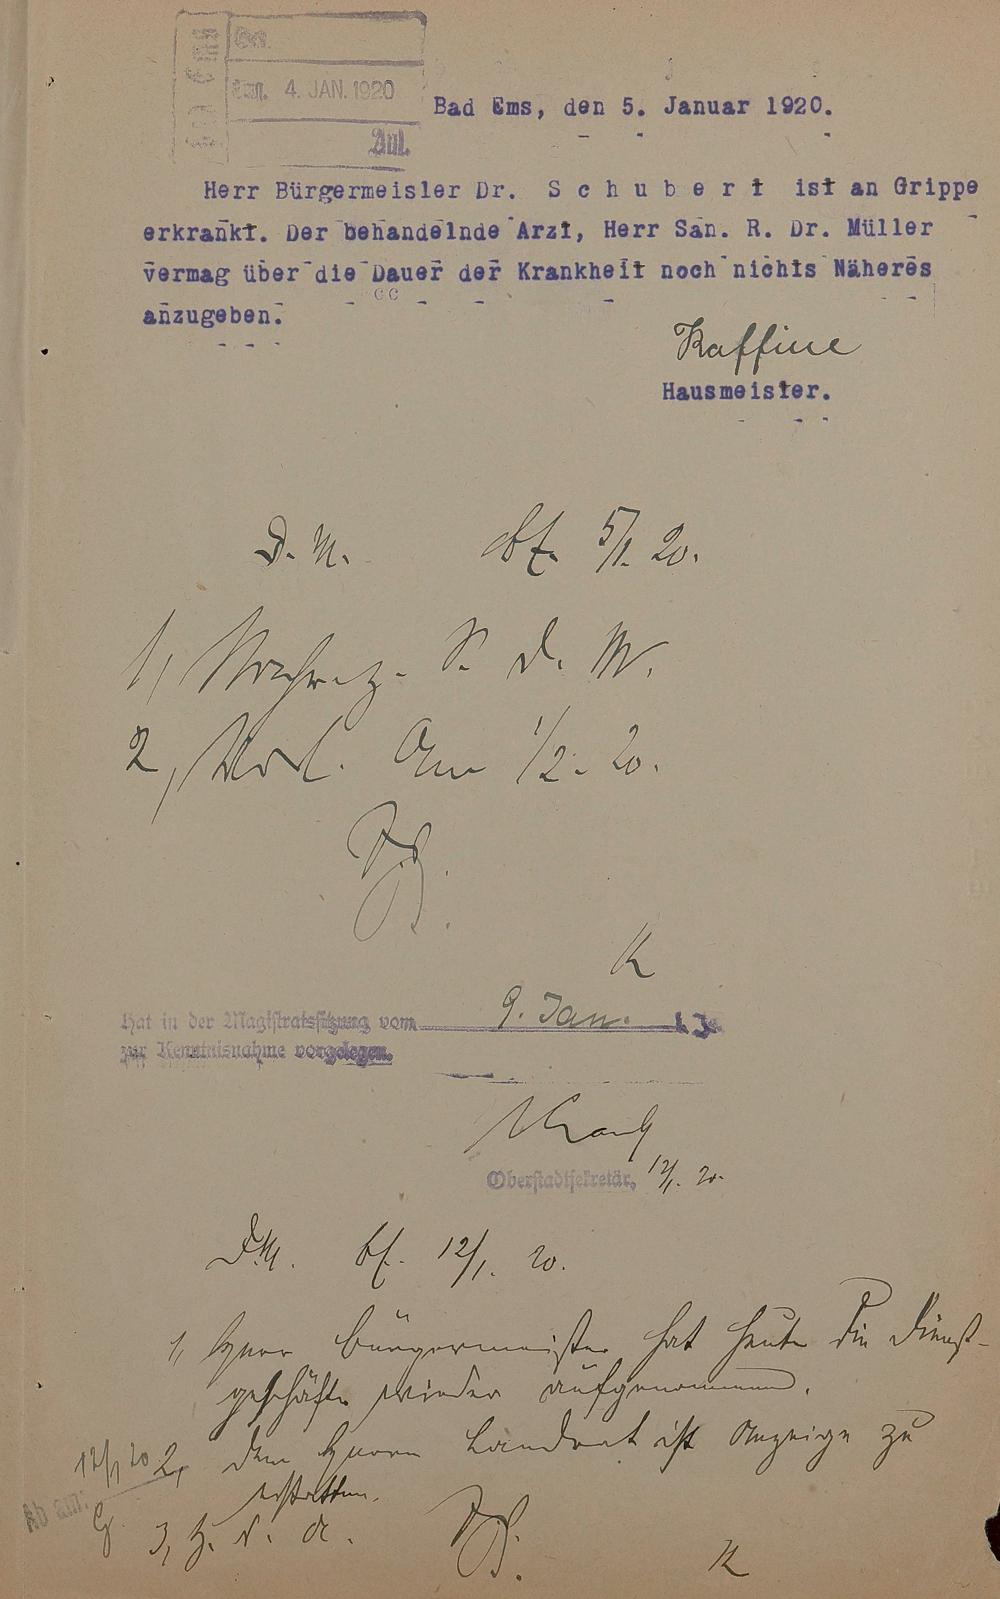 Bad Ems
Ein. 4. JAN. 1920
Anl.
Bad Ems, den 5. Januar 1920.
Herr Bürgermeister Dr. Schubert ist an Grippe
erkrankt. Der behandelnde Arzt, Herr San. R. Dr. Müller
vermag über die Dauer der Krankheit noch nichts Näheres
anzugeben.
Kaffine
Hausmeister.
D. M. 5/1. 20.
1, S. d. M.
2, Vorl. am 1/2. 20.
K
Hat in der Magistratssitzung vom 9. Jan.
zur Kenntnisnahme vorgelegen.
Oberstadtsekretär, 12/1. 20.
D. M. 12/1. 20.
1, Herr Bürgermeister hat heute die Dienst-
geschäfte wieder aufgenommen.
2, dem Herrn Landrat ist Anzeige zu
erstatten.
12/1 20
Ab am:
3, z. d. A.
K